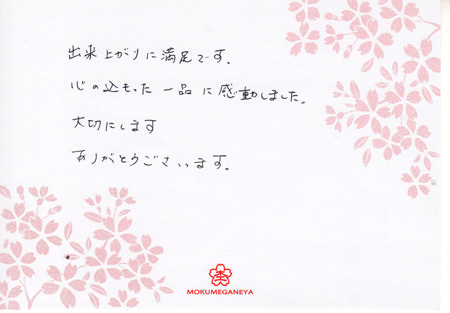 出来上がりに満足です.
心の込もった一品に感動しました。
大切にします
ありがとうございます。
MOKUMEGANEYA